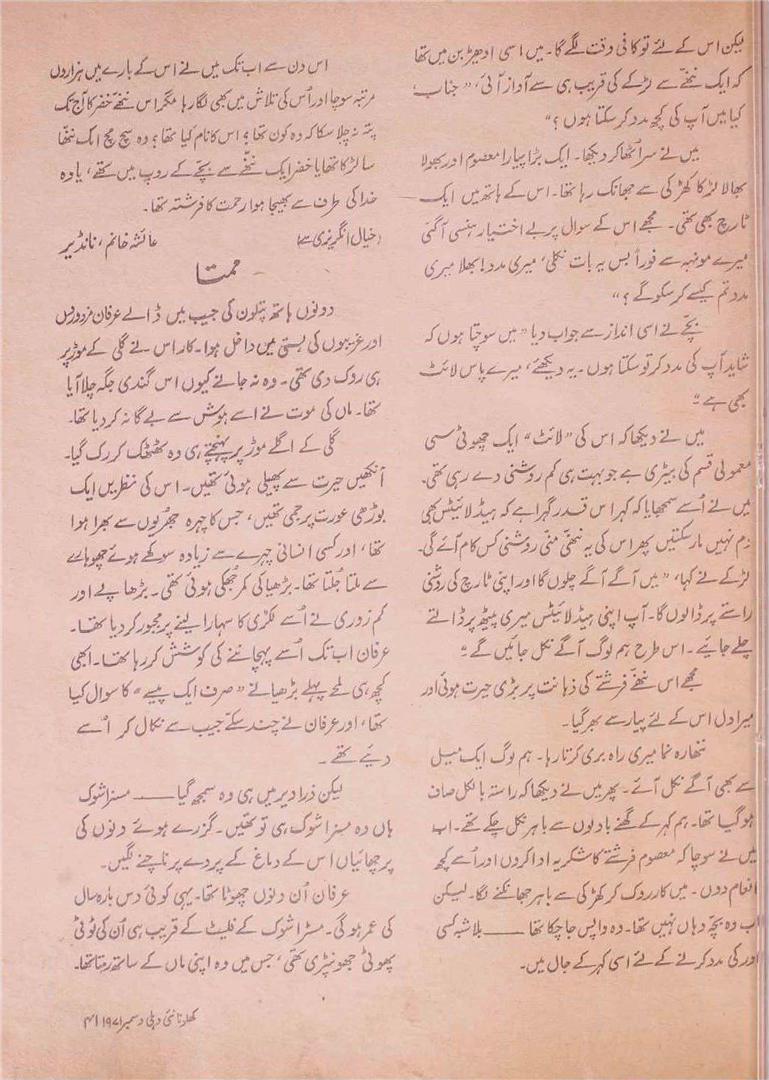 لیکن اس کے لئے تو کافی وقت لگے گا۔ میں اسی ادھیڑ بن میں تھا
کہ ایک ننھّے سے لڑکے کی قریب ہی سے آواز آئی، ”جناب،
کیا میں آپ کی کچھ مدد کر سکتا ہوں؟“
میں نے سر اُٹھا کر دیکھا۔ ایک بڑا پیارا معصوم اور بھولا
بھالا لڑکا کھڑکی سے جھانک رہا تھا۔ اس کے ہاتھ میں ایک
ٹارچ بھی تھی۔ مجھے اس کے سوال پر بے اختیار ہنسی آ گئی
میرے مونہہ سے فوراً بس یہ بات نکلی، میری مدد! بھلا میری
مدد تم کیسے کر سکو گے؟“
بچّے نے اسی انداز سے جواب دیا ”میں سوچتا ہوں کہ
شاید آپ کی مدد کر تو سکتا ہوں۔ یہ دیکھئے، میرے پاس لائٹ
بھی ہے“
میں نے دیکھا کہ اس کی ”لائٹ“ ایک چھوٹی سی
معمولی قسم کی بیٹری ہے جو بہت ہی کم روشنی دے رہی تھی۔
میں نے اُسے سمجھایا کہ کہر اس قدر گہرا ہے کہ ہیڈ لائیٹس بھی
دم نہیں مار سکتیں پھر اس کی یہ ننھّی منّی روشنی کس کام آئے گی۔
لڑکے نے کہا، ”میں آگے آگے چلوں گا اور اپنی ٹارچ کی روشنی
راستے پر ڈالوں گا۔ آپ اپنی ہیڈ لائیٹس میری پیٹھ پر ڈالتے
چلے جائیے۔ اس طرح ہم لوگ آگے نکل جائیں گے“
مجھے اس ننھّے فرشتے کی ذہانت پر بڑی حیرت ہوئی اور
میرا دل اس کے لئے پیار سے بھر گیا۔
ننھا رہ نما میری راہ بری کرتا رہا۔ ہم لوگ ایک میل
سے بھی آگے نکل آئے۔ پھر میں نے دیکھا کہ راستہ بالکل صاف
ہو گیا تھا۔ ہم کہر کے گھنے بادلوں سے باہر نکل چکے تھے۔ اب
میں نے سوچا کہ معصوم فرشتے کا شکریہ ادا کروں اور اُسے کچھ
انعام دوں۔ میں کار روک کر کھڑکی سے باہر جھانکنے لگا۔ لیکن
اب وہ بچّہ وہاں نہیں تھا۔ وہ واپس جا چکا تھا —— بلا شبہ کسی
اور کی مدد کرنے کے لئے اسی کہر کے جال میں۔
اس دن سے اب تک میں نے اس کے بارے میں ہزاروں
مرتبہ سوچا اور اُس کی تلاش میں بھی لگا رہا مگر اس ننھّے خضر کا آج تک
پتہ نہ چلا سکا کہ وہ کون تھا؟ اس کا نام کیا تھا؟ وہ سچ مچ اک ننّھا
سا لڑکا تھا یا خضر ایک ننھّے سے بچّے کے روپ میں تھے، یا وہ
خدا کی طرف سے بھیجا ہوا رحمت کا فرشتہ تھا۔
(خیال انگریزی سے) عائشہ خانم، ناندیڑ
ممتا
دونوں ہاتھ پتلون کی جیب میں ڈالے عرفان مزدوروں
اور غریبوں کی بستی میں داخل ہوا۔ کار اس نے گلی کے موڑ پر
ہی روک دی تھی۔ وہ نہ جانے کیوں اس گندی جگہ چلا آیا
تھا۔ ماں کی موت نے اسے ہوش سے بے گانہ کر دیا تھا۔
گلی کے اگلے موڑ پر پہنچتے ہی وہ ٹھٹھک کر رک گیا۔
آنکھیں حیرت سے پھیلی ہوئی تھیں۔ اس کی نظریں ایک
بوڑھی عورت پر جمی تھیں، جس کا چہرہ جھریوں سے بھرا ہوا
تھا، اور کسی انسانی چہرے سے زیادہ سوکھے ہوئے چھوہارے
سے ملتا جُلتا تھا۔ بڑھیا کی کمر جھکی ہوئی تھی۔ بڑھاپے اور
کم زوری نے اُسے لکڑی کا سہارا لینے پر مجبور کر دیا تھا۔
عرفان اب تک اُسے پہچاننے کی کوشش کر رہا تھا۔ ابھی
کچھ ہی لمحے پہلے بڑھیا نے ”صرف ایک پیسے“ کا سوال کیا
تھا، اور عرفان نے چند سکّے جیب سے نکال کر اُسے
دیئے تھے۔
لیکن ذرا دیر میں ہی وہ سمجھ گیا —— مسز اشوک
ہاں وہ مسز اشوک ہی تو تھیں۔ گزرے ہوئے دنوں کی
پرچھائیاں اس کے دماغ کے پردے پر ناچنے لگیں۔
عرفان اُن دنوں چھوٹا تھا۔ یہی کوئی دس بارہ سال
کی عمر ہو گی۔ مسٹر اشوک کے فلیٹ کے قریب ہی اُن کی ٹوٹی
پھوٹی جھونپڑی تھی، جس میں وہ اپنی ماں کے ساتھ رہتا تھا۔
کھلونا نئی دہلی دسمبر ۱۹۷۱ ۴۱